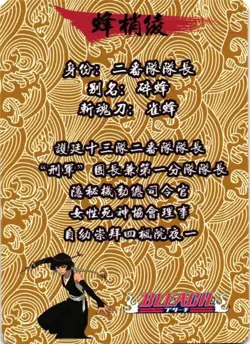 蜂梢綾
身份: 二番隊隊長
别名: 碎蜂
斬魂刀: 雀蜂
護廷十三隊二番隊隊長
“刑軍”團長兼第一分隊隊長
隱秘機動總司令官
女性死神協會理事
自幼崇拜四楓院夜一
BLEACH
ブリーチ